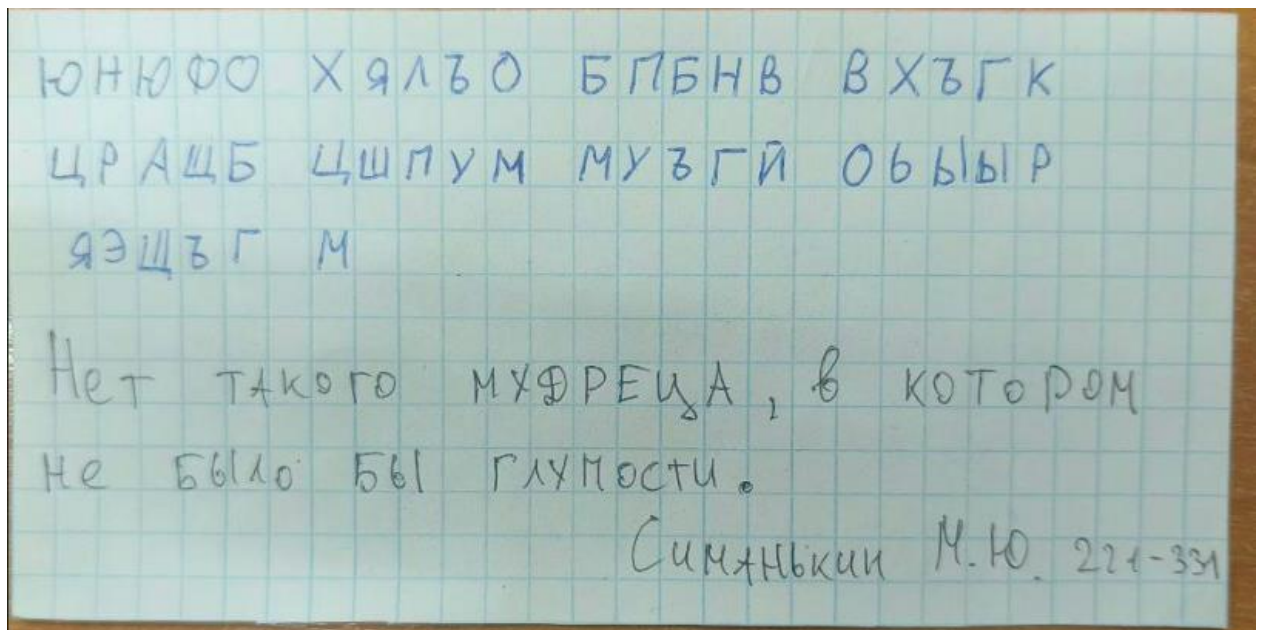 ЮНЮФО ХЯЛЪО БПБНВ ВХЪГК
ЦРАЩБ ЦШПУМ МУЪГЙ ОЬЫЫР
ЯЭЩЪГ М
Нет такого мудреца, в котором
не было бы глупости.
Симанькин М.Ю. 221-331